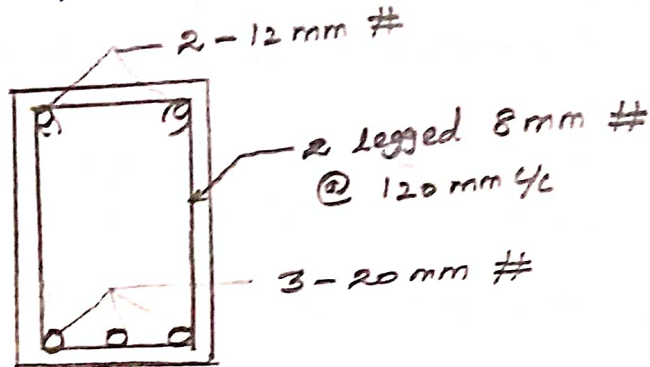 2-12mm #
2 Legged 8mm #
@ 120mm c/c
3-20mm #